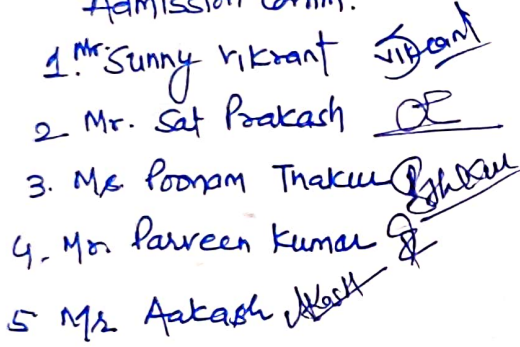 Admission Comm.
1. Mr. Sunny Vikrant Vikrant
2 Mr. Sat Prakash
3. Ms Poonam Thakur
4. Mr Parveen Kumar
5 Mr Aakash Akash